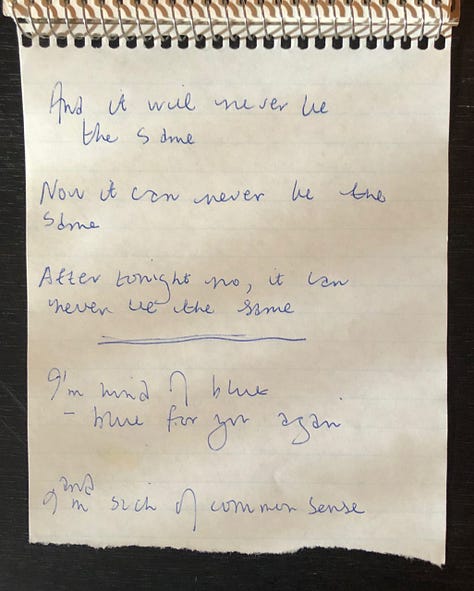 And it will never be
the same
Now it can never be the
same
After tonight no, it can
never be the same
I'm kind of blue
- blue for you again
and
I'm sick of common sense